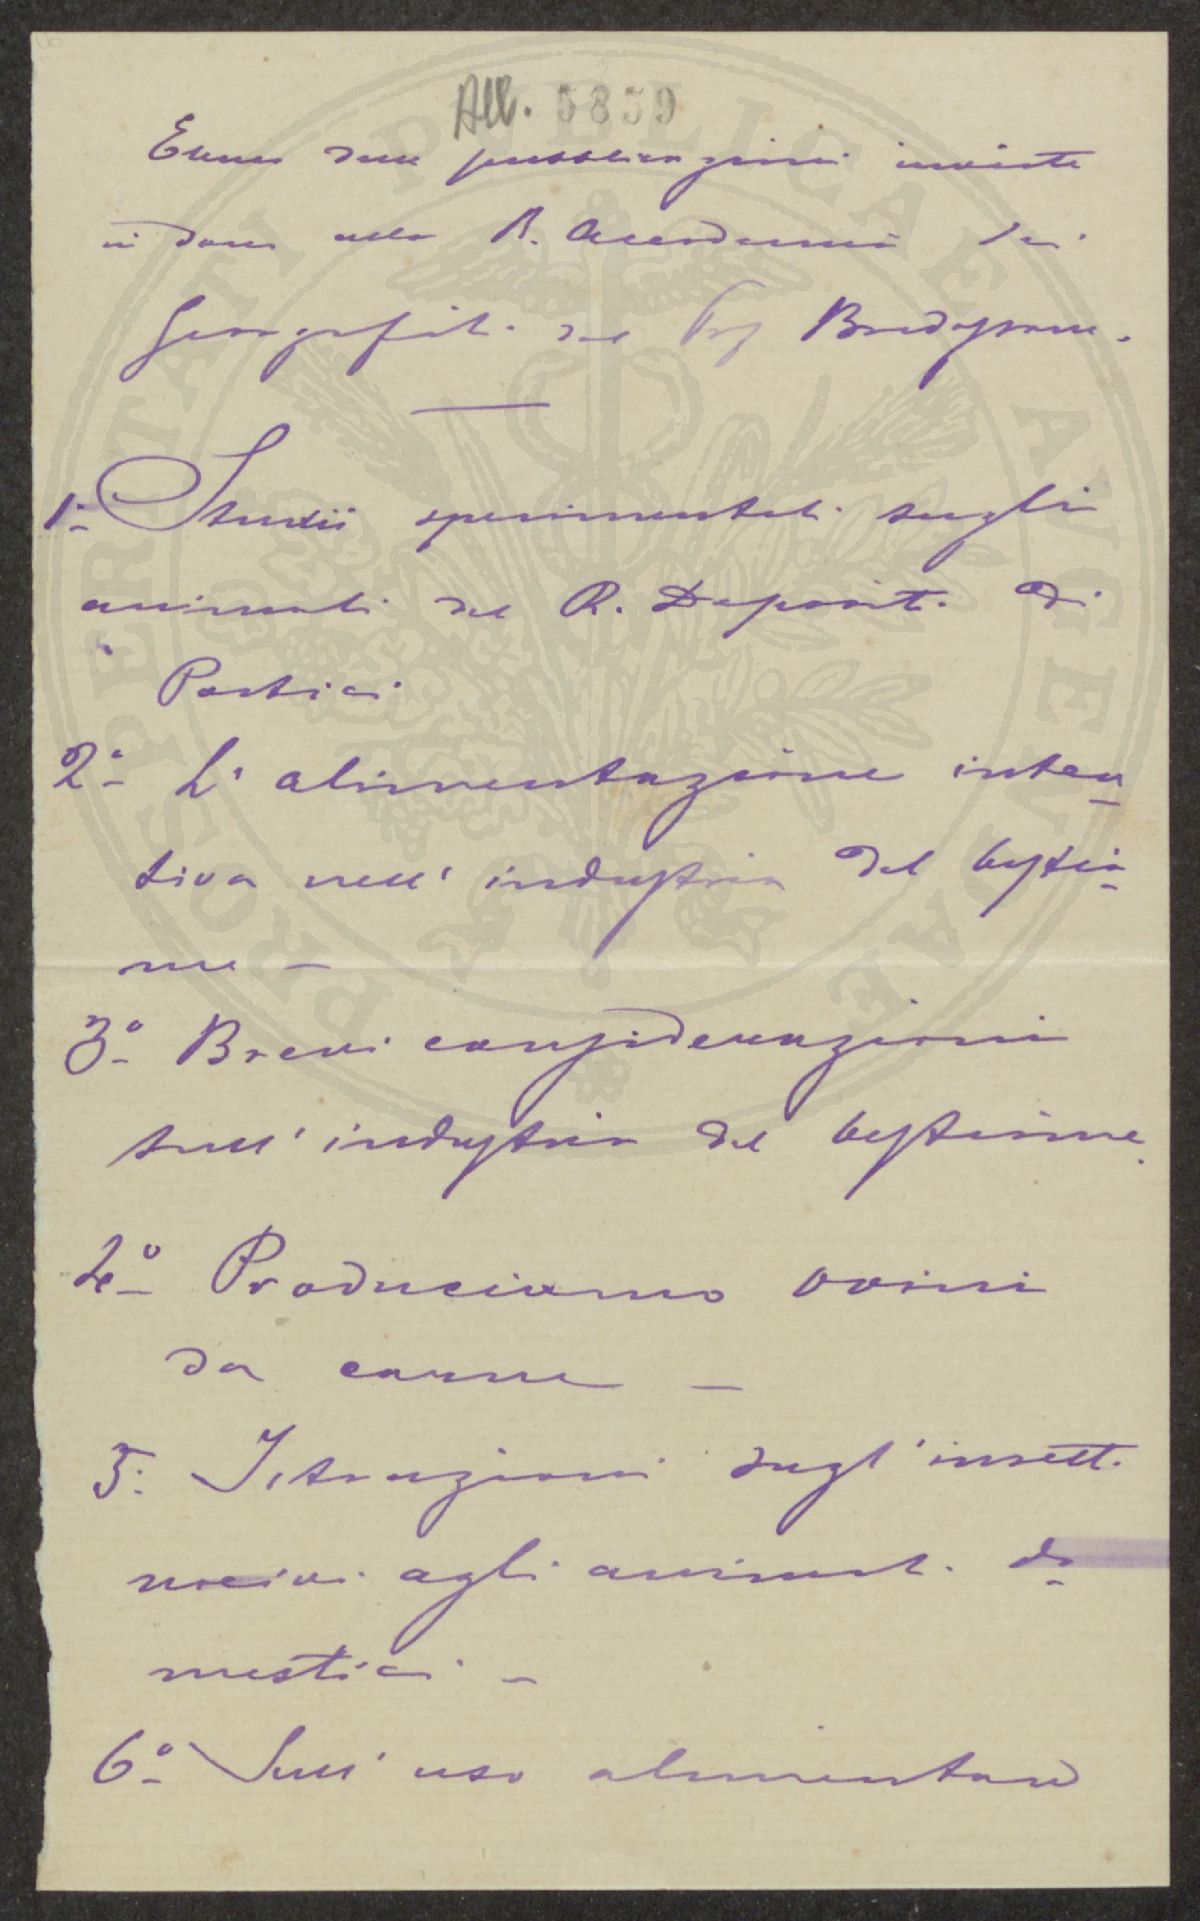 All. 5859
Elenco delle pubblicazioni inviate
in dono alla R. Accademia dei
Georgofili dal Prof
1º Studii sperimentali sugli
animali del R. Deposito di
Portici
2º L'alimentazione inten
siva nell'industria del bestia
me –
3º Brevi considerazioni
sull'industria del bestiame.
4º Produciamo ovini
da carne –
5: Istruzioni sugl'insetti
nocivi agli animali do
mestici –
6º Sull'uso alimentare
PROSPERITATI PUBLICAE AUGENDAE